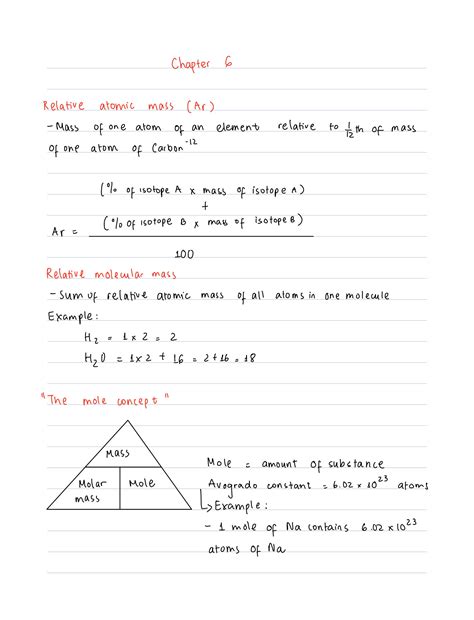 Chapter 6
Relative atomic mass (Ar)
- Mass of one atom of an element relative to 1/12 th of mass
of one atom of Carbon⁻¹²
(% of isotope A x mass of isotope A)
+
(% of isotope B x mass of isotope B)
Ar =
100
Relative molecular mass
- Sum of relative atomic mass of all atoms in one molecule
Example:
H₂ = 1 x 2 = 2
H₂O = 1x2 + 16 = 2+16 = 18
"The mole concept"
Mass
Molar mass
Mole
Mole = amount of substance
Avogrado constant = 6.02 x 10²³ atoms
↳ Example:
- 1 mole of Na contains 6.02 x 10²³
atoms of Na